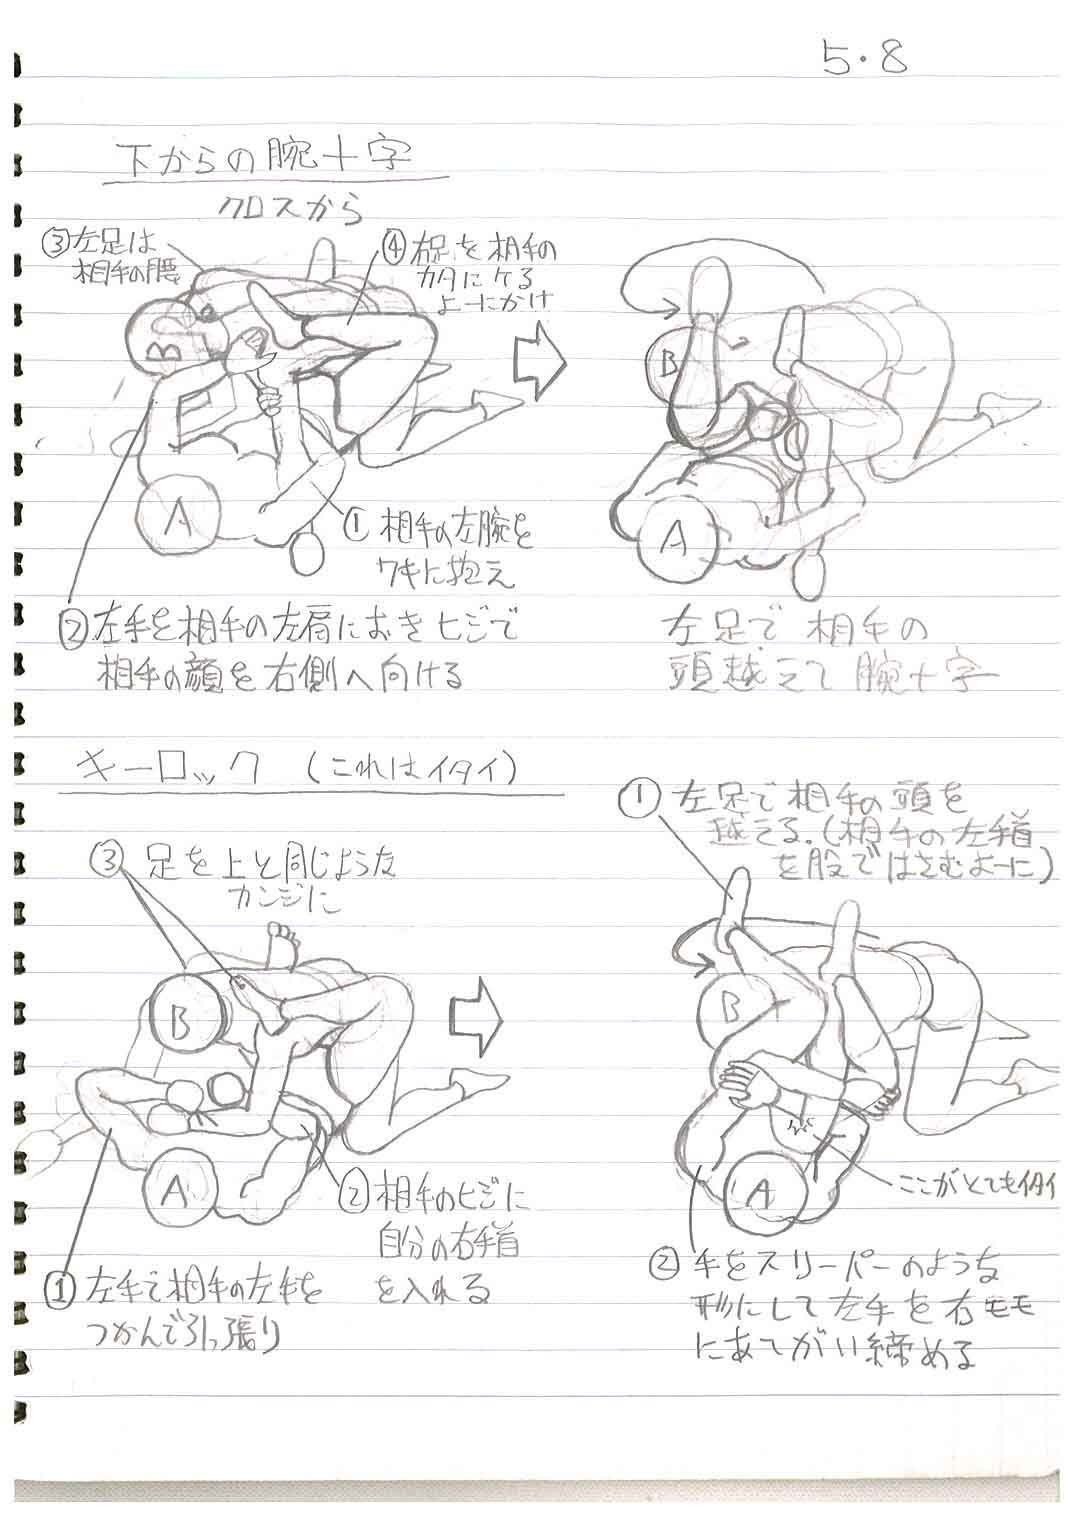 5・8
下からの腕十字
クロスから
③左足は
相手の腰
④右足を相手の
カタにケる
よーにかけ
B
A
①相手の左腕を
ワキに抱え
②左手を相手の左肩におきヒジで
相手の顔を右側へ向ける
B
A
左足で相手の
頭越えて腕十字
キーロック (これはイタイ)
③足を上と同じような
カンジに
B
A
②相手のヒジに
自分の右手首
を入れる
①左手で相手の左手を
つかんで引っ張り
①左足で相手の頭を
越える。(相手の左手首
を股ではさむよーに)
B
A
ここがとてもイタイ
②手をスリーパーのような
形にして左手を右モモ
にあてがい締める